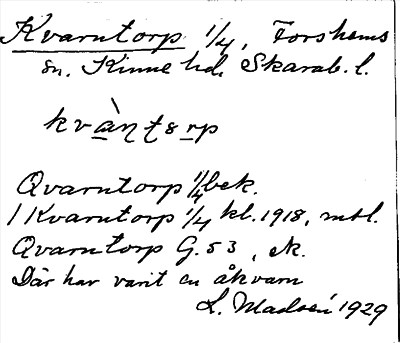 Kvarntorp 1/4, Forshems
sn. Kinne hd. Skarab. l.
kvàṇʈsrp
Qvarntorp 1/4 bek.
1 Kvarntorp 1/4 kl. 1918, mtl.
Qvarntorp G. 53, ek.
Där har varit en åkvarn
L. Madsén 1929